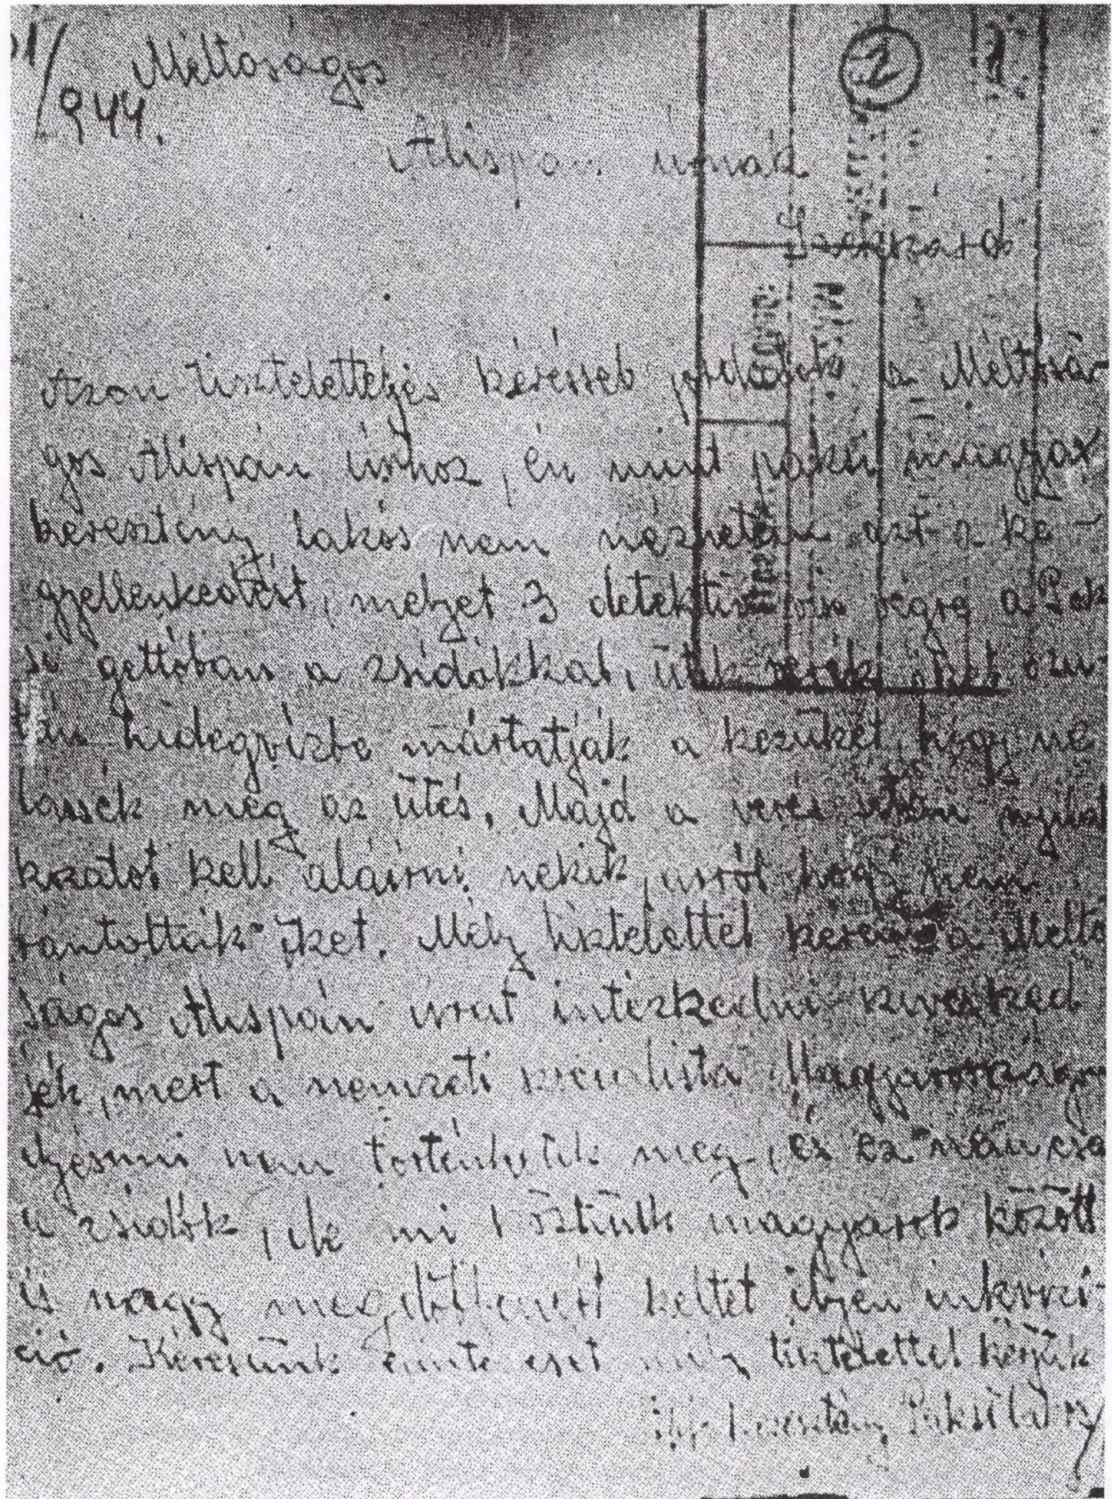 Méltóságos
944.
Alispán úrnak
Szekszárd
Azon tisztelettejés kéréssel fordulok a Méltósá-
gos Alispán úrhoz, én mint paksi magyar
keresztény lakós nem nézhetem ezt a ke-
gyellenkedést, melyet 3 detektiv visz végre a Pak
si gettóban a zsidókkal, ütik verik őket ezu-
tán hidegvízbe mártatják a kezüket, hogy ne
lássék meg az ütés, Majd a verés után nyilat
kozatot kell aláirni nekik, arról hogy nem
bántották őket. Mély tisztelettel kérem a Méltó
ságos Alispán urat intézkedni kegyesked
jék, mert a nemzeti szocialista Magyarországon
ilyesmi nem történhetik meg, és ez nem csa
a zsidók, de mi köztünk magyarok között
is nagy megdöbbenést keltet ilyen inkvizi-
ció. Kérésünk mély tisztelettel kérjük
keresztény Paksi